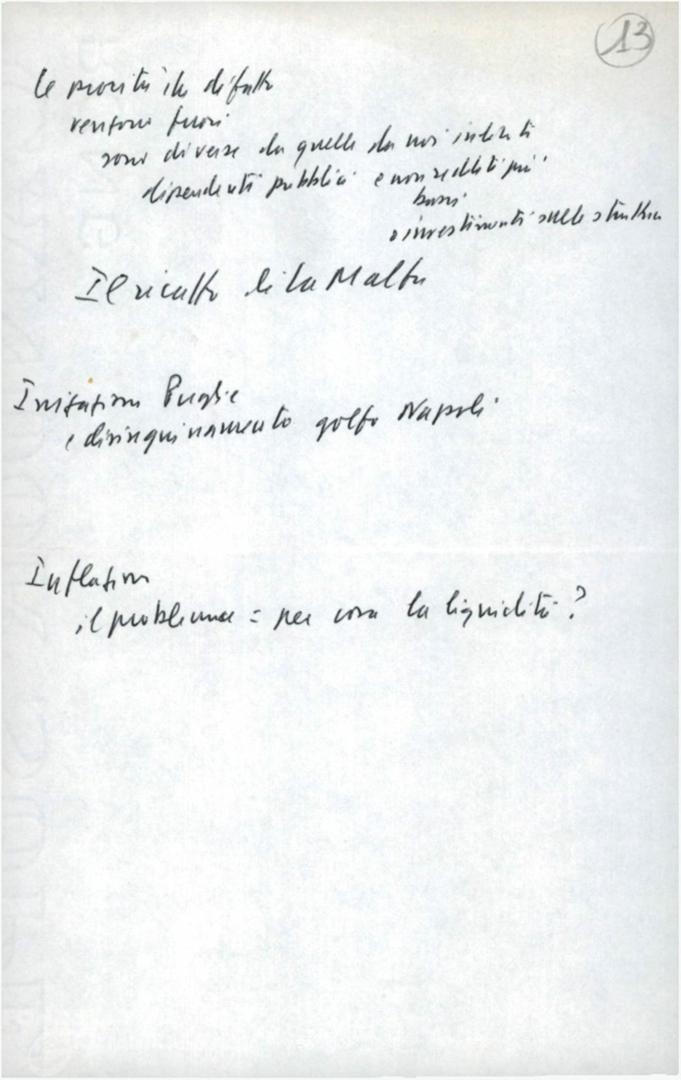 13
le priorità che di fatto
vengono fuori
sono diverse da quelle da noi indicate
dipendenti pubblici e non redditi più
bassi
e investimenti sulle strutture
Il ricatto di La Malfa
Irrigazione Puglie
e disinquinamento golfo Napoli
Inflazione
il problema = per cosa la liquidità?